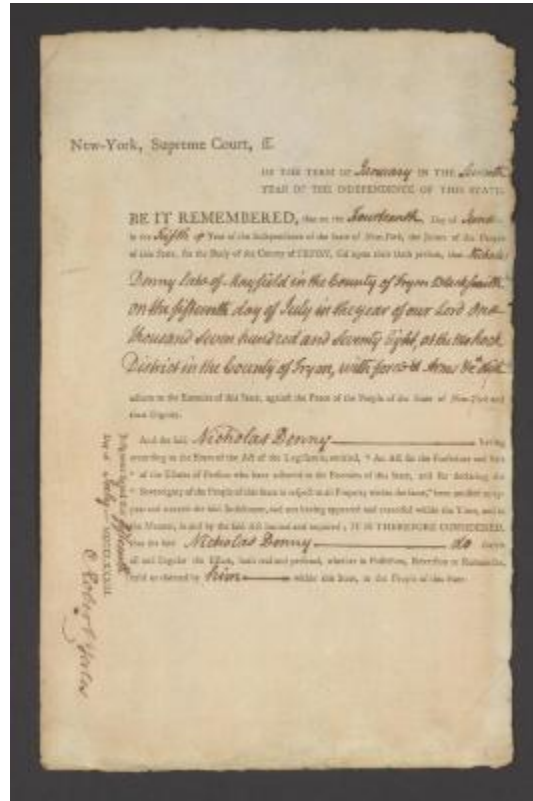 New-York, Supreme Court, ss.
OF THE TERM OF January IN THE Seventh
YEAR OF THE INDEPENDENCE OF THIS STATE.
BE IT REMEMBERED, that on the Fourteenth Day of June
in the Fifth Year of the Independence of the State of New-York, the Jurors of the People
of this State, for the Body of the County of TRYON, did upon their Oath present, that Nicholas
Denny late of Mayfield in the County of Tryon Blacksmith
on the fifteenth day of July in the year of our Lord One
thousand seven hundred and seventy Eight, at the Mohock
District in the County of Tryon, with force & Arms &c. did
adhere to the Enemies of this State, against the Peace of the People of the State of New-York and
their Dignity.
And the said Nicholas Denny having
according to the Form of the Act of the Legislature, entitled, "An Act for the Forfeiture and Sale
"of the Estates of Persons who have adhered to the Enemies of this State, and for declaring the
"Sovereignty of the People of this State in respect to all Property within the same," been notified to
appear and traverse the said Indictment, and not having appeared and traversed within the Time, and in
the Manner, in and by the said Act limited and required; IT IS THEREFORE CONSIDERED,
that the said Nicholas Denny do forfeit
all and singular the Estate, both real and personal, whether in Possession, Reversion or Remainder,
held or claimed by him within this State, to the People of this State.
Judgment signed this fifteenth
Day of July MDCCLXXXIII.
Robert Yates